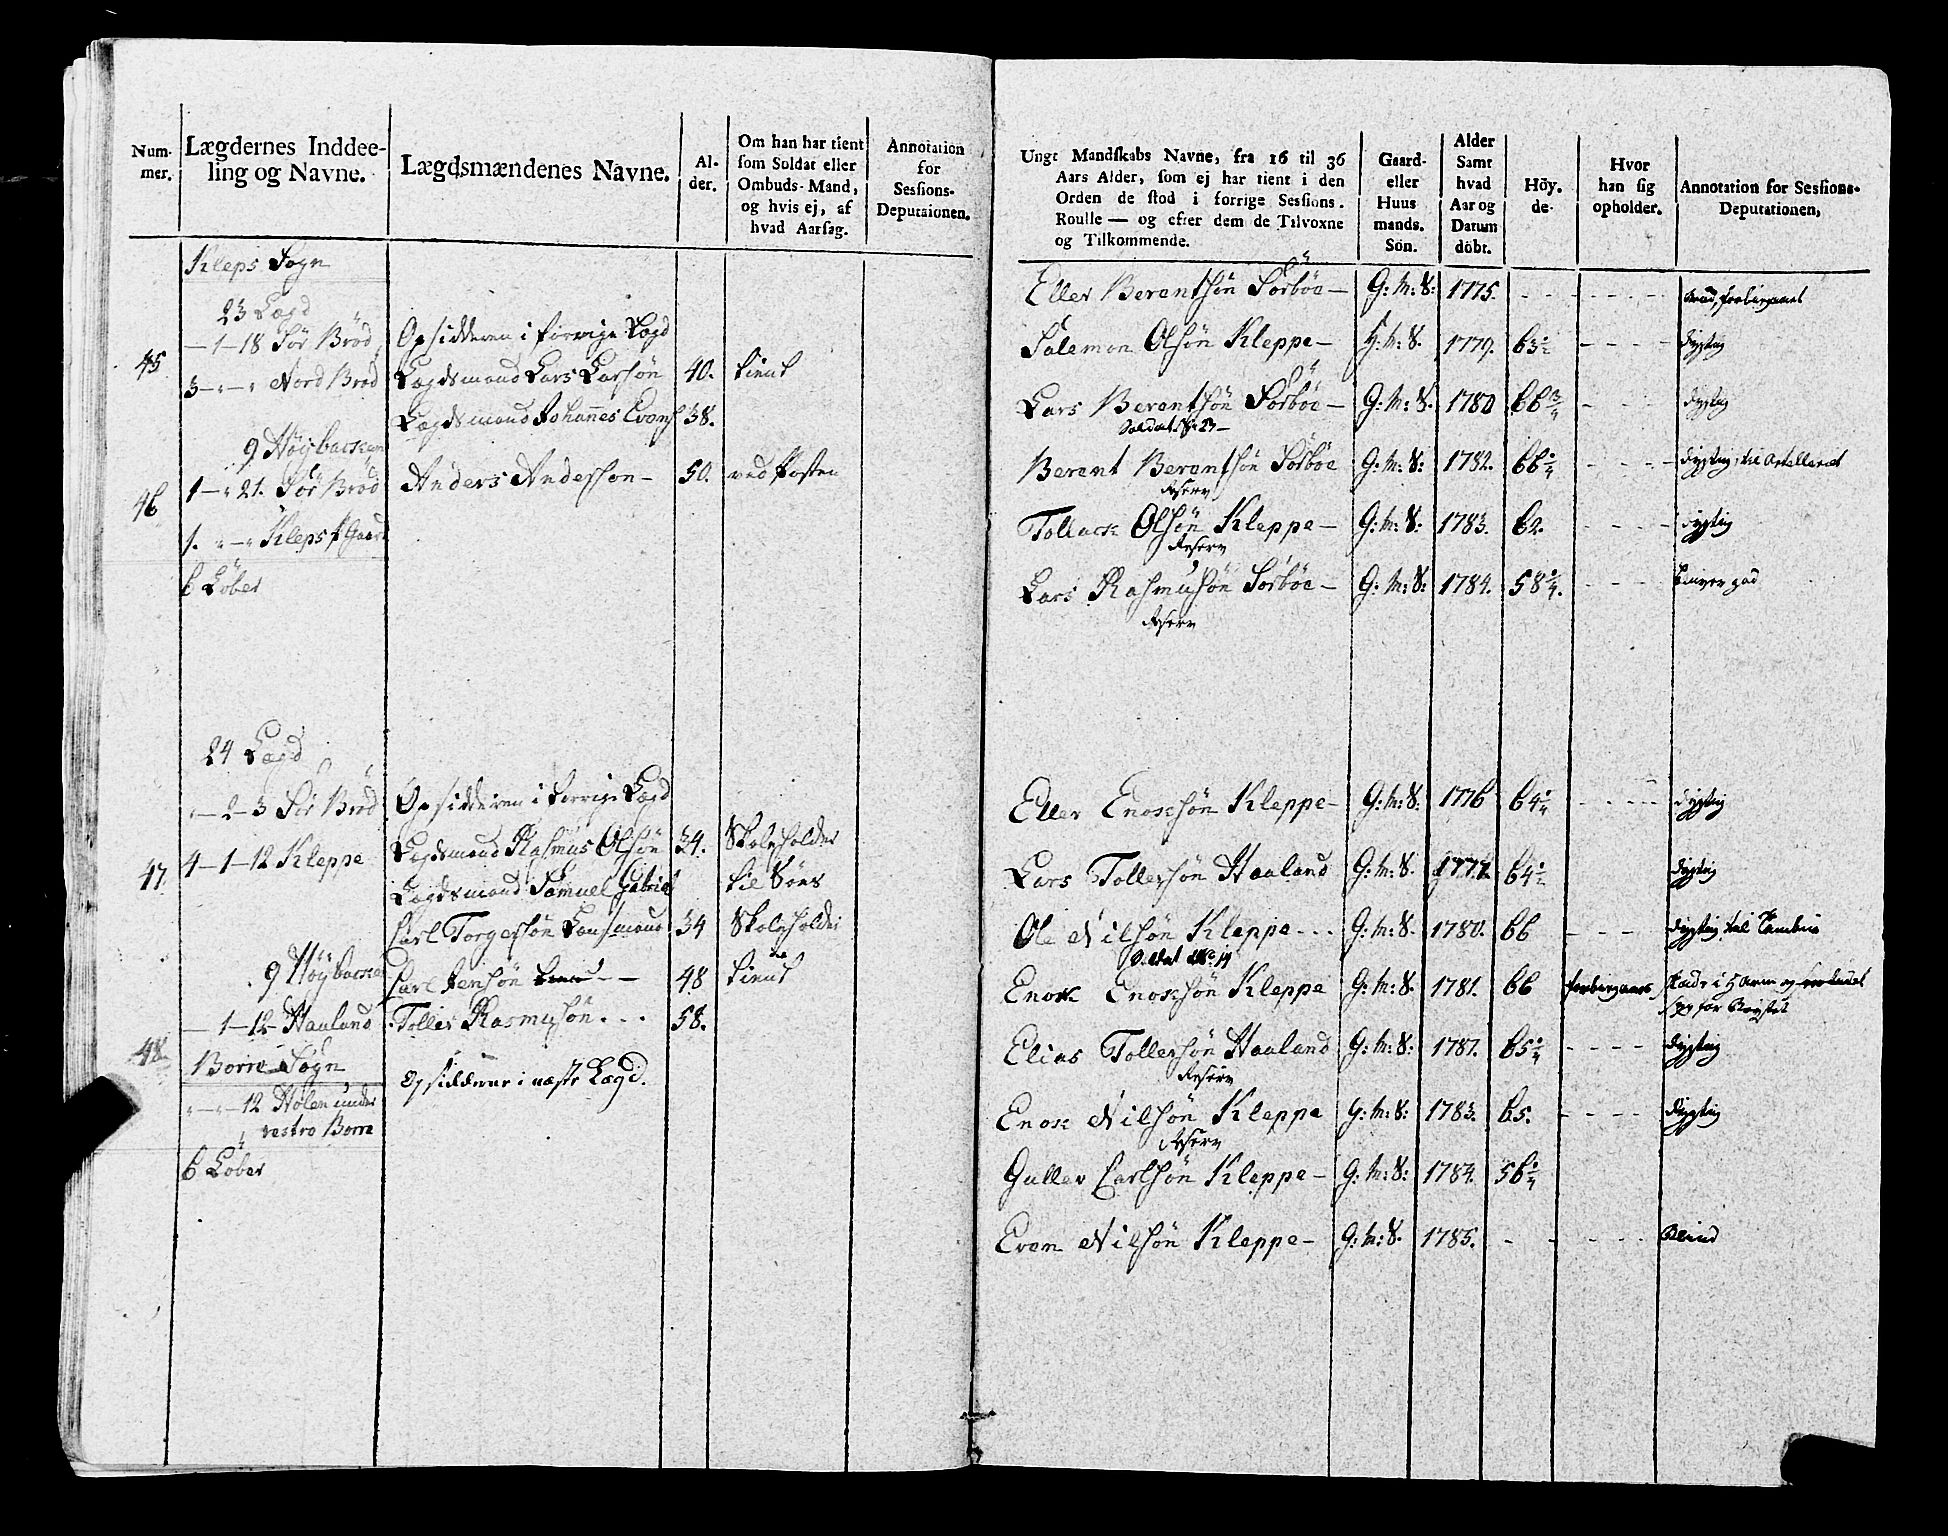 Num-
mer.
Lægdernes Inddee-
ling og Navne.
Lægdsmændenes Navne.
Al-
der.
Om han har tient
som Soldat eller
Ombuds-Mand,
og hvis ej, af
hvad Aarsag.
Annotation
for
Sessions-
Deputaionen.
Kleps Sogn
23 Lægd
45 —1—18 Sör Bröd Opsidderen i forrige Lægd
3 — Nord Bröd Lægdsmand Lars Larsön 40. tient
Lægdsmand Johannes Evens 38.
9 Höybacken
46 1— 21. Sör Bröd Anders Andersson — 50. ved Posten
1. Kleps P Gaard
6 Löber
24 Lægd
—2—3 Sör Bröd Opsidderen i forrige Lægd
47 4—1—12 Kleppe Lægdsmand Rasmus Olsön 34. Skoleholder
Lægdsmand Samuel Gabriel til Söes
Carl Torgersön Lensmand 34 Skoleholder
9 Höybacken Carl Jensön 48 tient
—1—12 Haaland Toller Rasmusön . . . 58.
48
Borre Sogn Opsidderne i næste Lægd.
12 Holen under
vestre Borre
6 Löber
Ungt Mandskabs Navne, fra 16 til 36
Aars Alder, som ej har tient i den
Orden de stod i forrige Sessions-
Roulle — og efter dem de Tilvoxne
og Tilkommende.
Gaard-
eller
Huus
mands-
Sön.
Alder
Samt
hvad
Aar og
Datum
döbt.
Höy-
de.
Hvor
han sig
opholder.
Annotation for Sessions-
Deputationen,
Eller Berentsön Sörböe — G:M:S: 1775. forbigaaet
Salemon Olsön Kleppe — G:M:S. 1779. 63 dygtig
Lars Berentsön Sörböe — G:M:S. 1780 66 dygtig
Soldat No 23 —
Berent Berentsön Sörböe G:M:S: 1782. 66 dygtig til Artelleriet
Reserv
Tollack Olsön Kleppe — G:M:S: 1783. 62. dygtig
Reserv
Lars Rasmusön Sörböe — G:M:S: 1784. 58
Reserv
Eller Enocksön Kleppe — G:M:S: 1776 64 dygtig
Lars Tollersön Haaland G:M:S. 1777 64 dygtig
Ole Nilsön Kleppe . . . G:M:S. 1780. 66 dygtig til
Soldat No 19
Enock Enocksön Kleppe G:M:S: 1781. 66 forbigaaes
for Brystet
Elias Tollersön Haaland G:M:S: 1781. 65 dygtig
Reserv
Enock Nilsön Kleppe G:M:S: 1783. 65. dygtig
Reserv
Guller Carlsön Kleppe — G:M:S: 1784. 56
Even Nilsön Kleppe — G:M:S. 1785. Blind